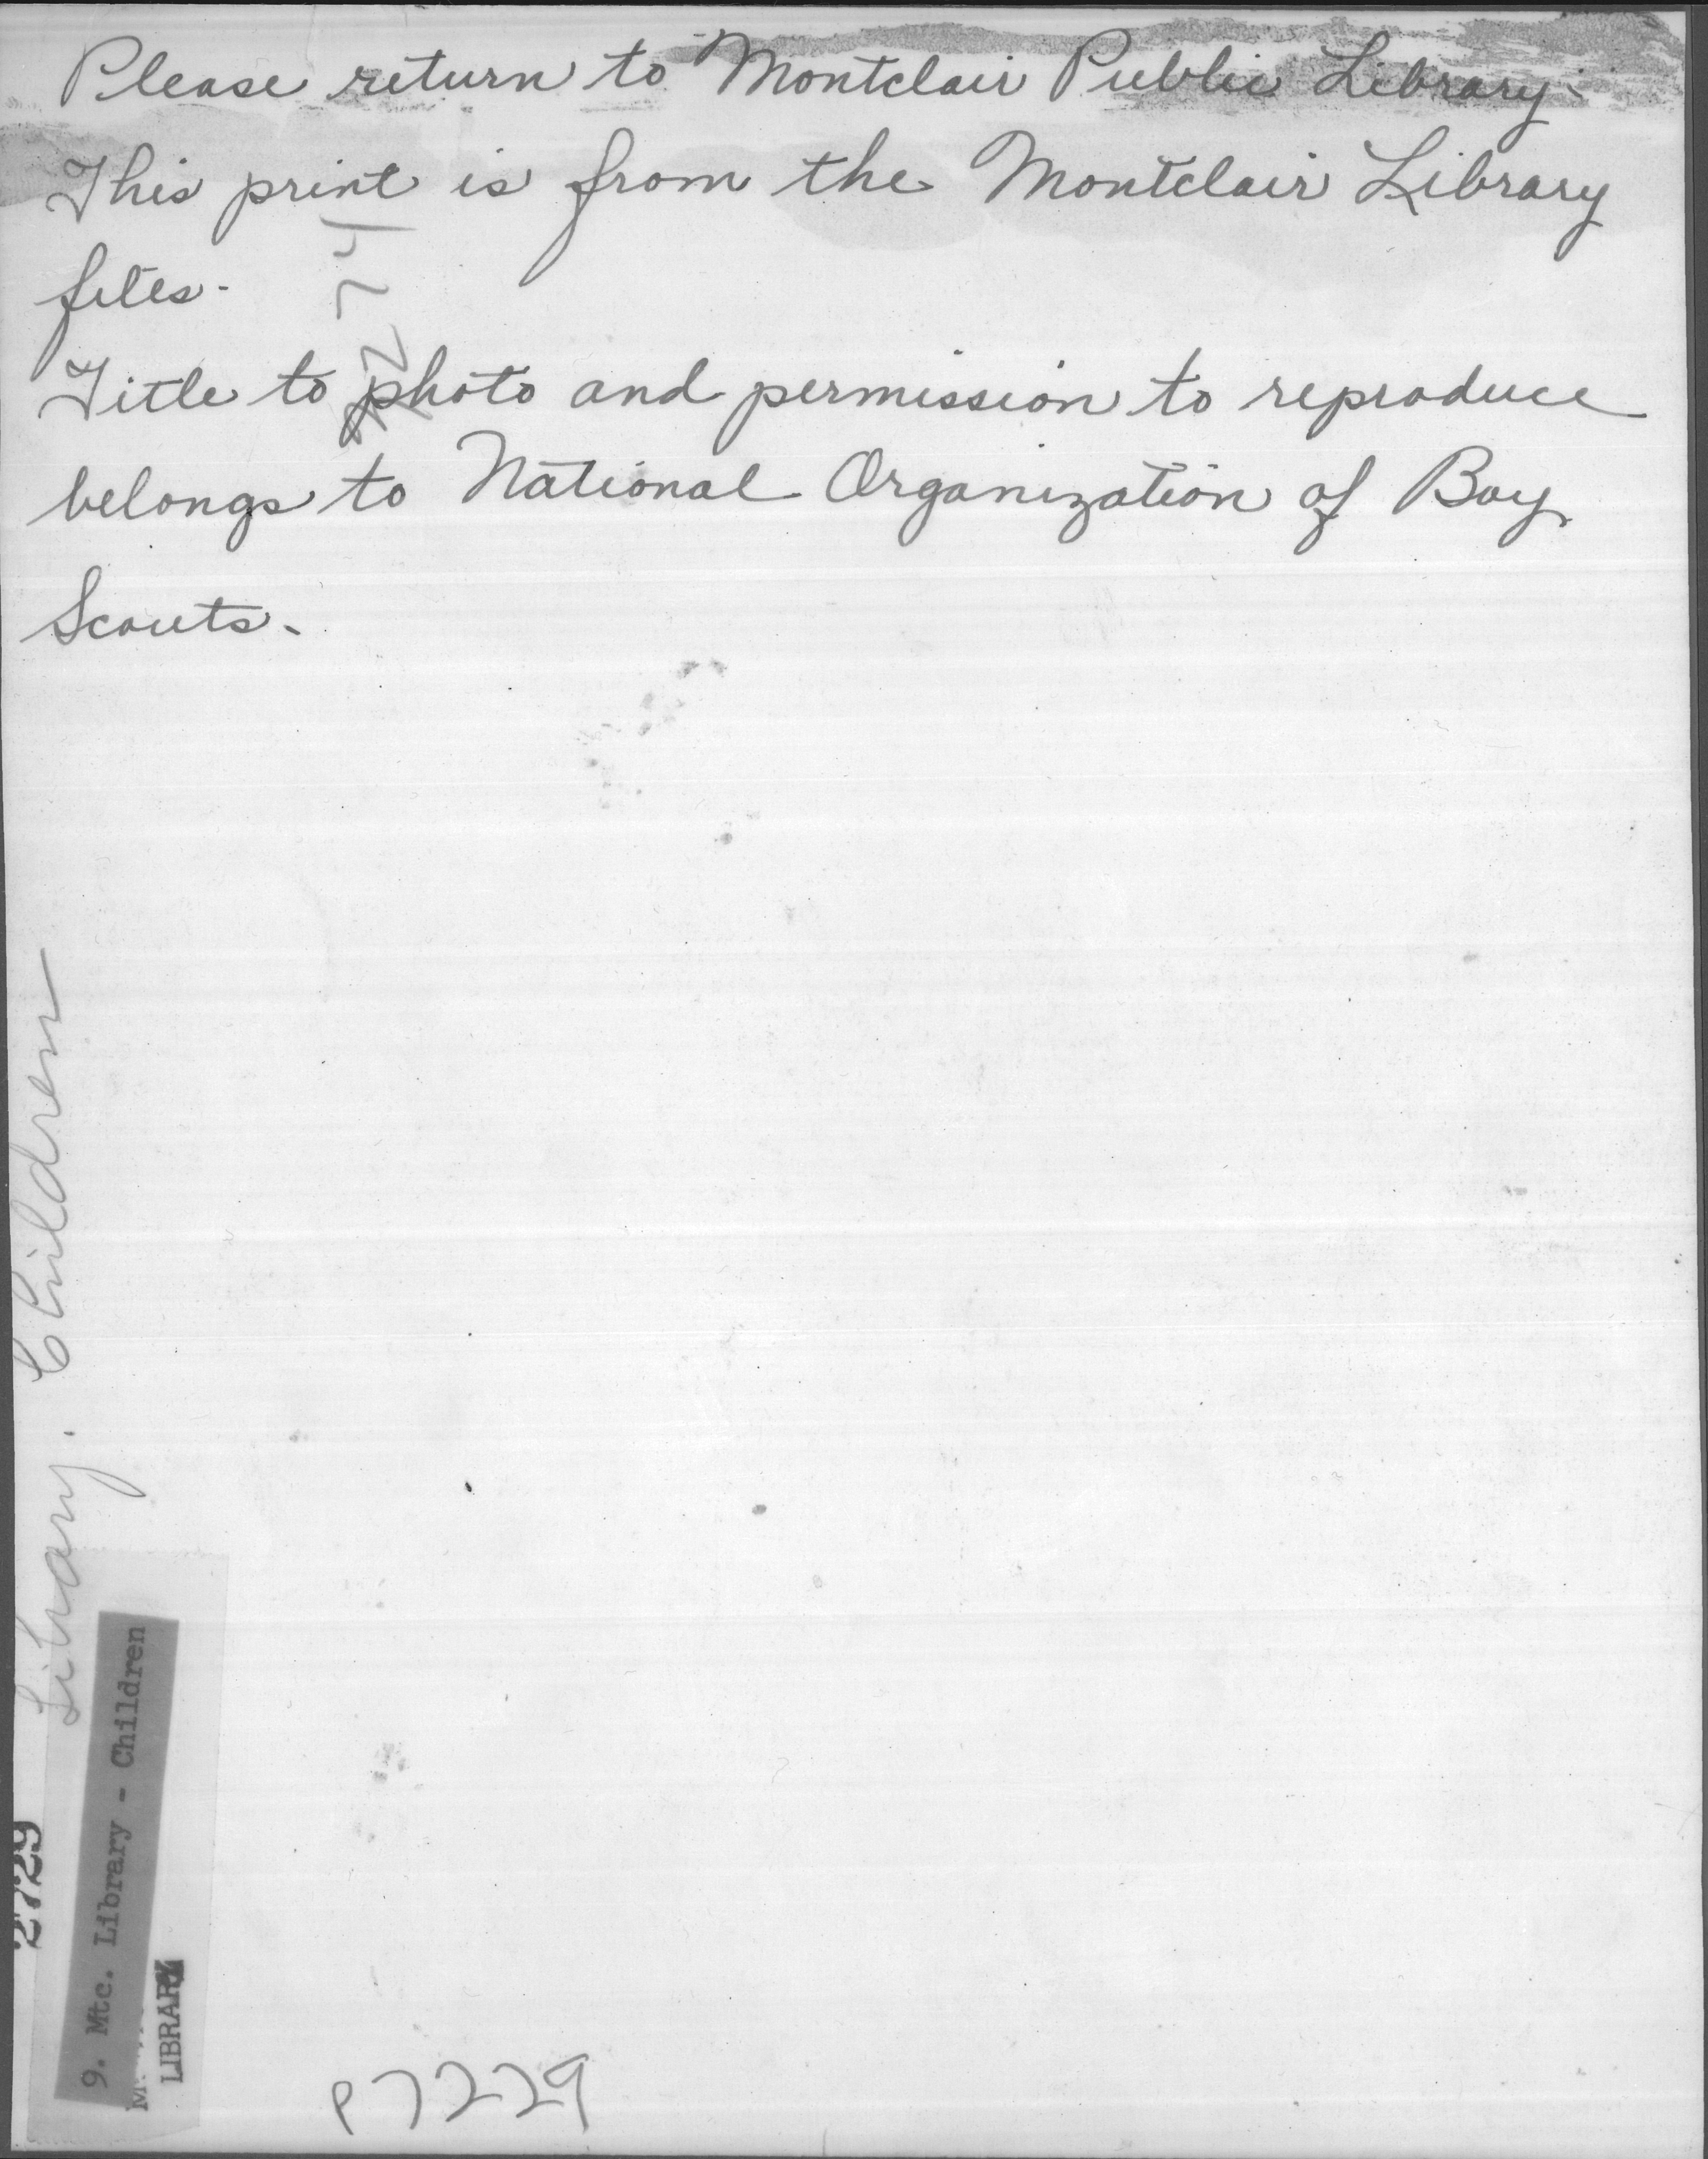 Please return to Montclair Public Library.
This print is from the Montclair Library
files.
Title to photo and permission to reproduce
belongs to National Organization of Boy
Scouts.
Library. Children
2729
9. Mtc. Library - Children
LIBRARY
P7229